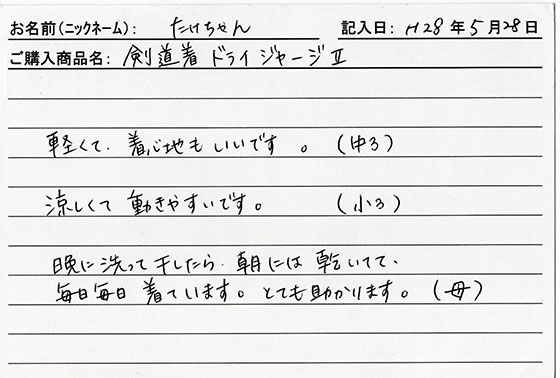 お名前(ニックネーム): たけちゃん 記入日: H28年5月28日
ご購入商品名: 剣道着 ドライジャージⅡ
軽くて、着心地もいいです。 (中3)
涼しくて動きやすいです。 (小3)
晩に洗って干したら、朝には乾いてて、
毎日毎日着ています。とても助かります。(母)